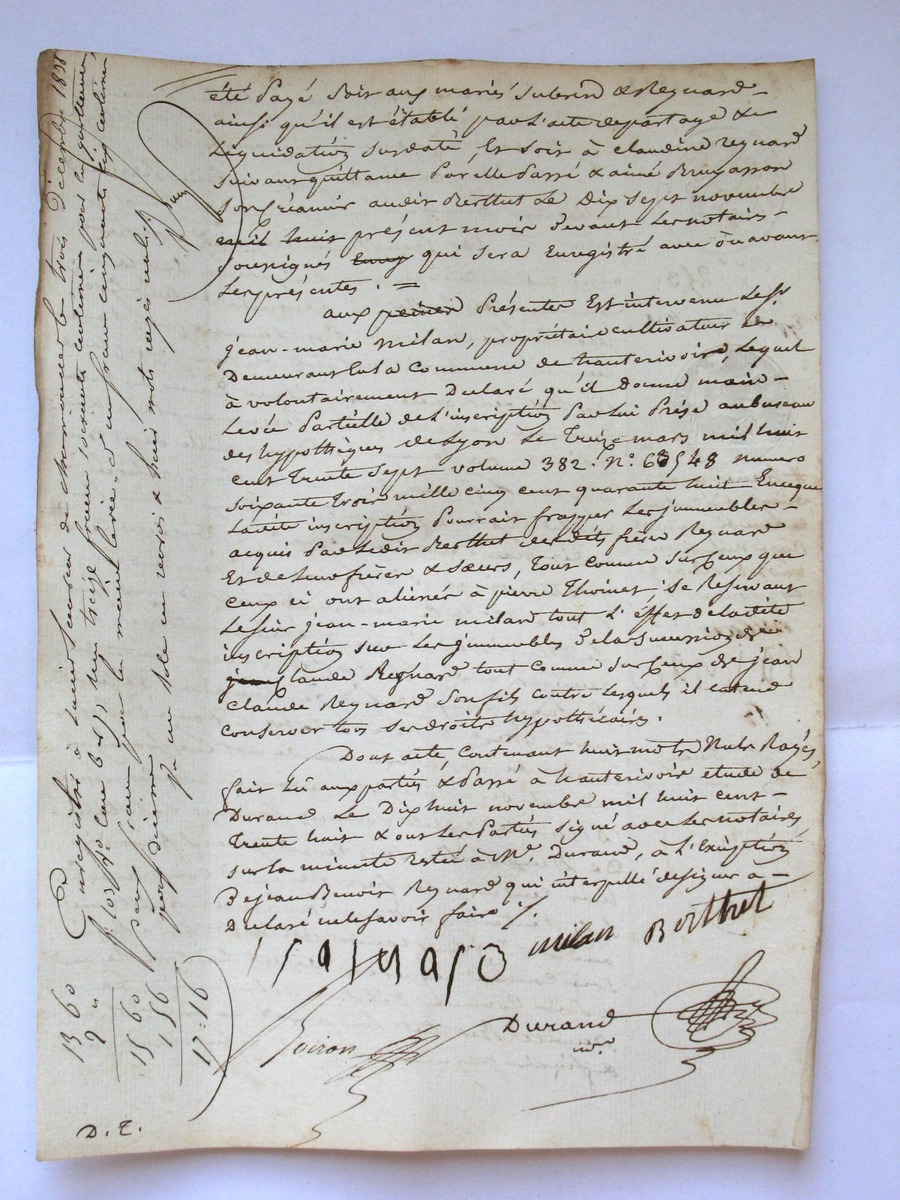 été Payé Soit aux mariés Subrin & Reynard
ainsi qu'il est établé par L'acte de partage & de
Liquidation Susdaté, Et Soit à Claudine Reynard
Suivant quittance Par elle Passé & aimé Bruyasson
Son fr audit Berthet Le Dix Sept novembre
mil huit présent mois Devant Les notaires
Sousignés qui sera Enregistré avec ou avant
Les présentes . =
aux Présentes Est intervenu Le Sr.
jean-marie milan, propriétaire cultivateur De
Demeurant En la Commune de hauterivoire, Lequel
à volontairement Declaré qu'il donne main-
Levée Partielle de L'inscription Par Lui Prise au bureau
des hypothèques de Lyon Le Treize mars mil huit
Cent Trente Sept volume 382. N.° 63548 numero
Soixante Trois mille Cinq Cent quarante huit En ce que
Ladite inscription Pourrait frapper Les jmmeubles
acquis Par Ledit Berthet desdits frère Reynard
Et de Leurs frères & Sœurs, Tout Comme Sur Ceux que
Ceux ci ont aliéner à pierre Thoinet, se Reservant
Le Sieur jean-marie milan tout L'effet de La dite
inscription Sur Les jmmeubles De la Succession de
Claude Reynard tout Comme Sur Ceux de jean
Claude Reynard Son fils Contre Lesquels il entend
Conserver tous Ses droits hypothécaires.
Dont acte, Contenant huit mots Nuls Rayés,
fait Lu aux parties & Passé à hauterivoire étude de
Durand Le Dix huit novembre mil huit cent
Trente huit & ont Les Parties Signé avec Les notaires
Sur La minute restée à M.e Durand, à L'Exéption
De jean Benoit Reynard qui interpellé de signer a
Declaré ne le savoir faire %.
milan Berthet
Durand
n.re
Enregistré à Saint Laurent de Chamousset le trois Décembre 1838
f.° 105 R.° Case 6 & 7 Reçu treize francs soixante centimes pour les quittances
deux francs pour la main levée & un franc cinquante six centimes
pour décime
un rôle un renvoi & huit mots rayés nuls
13 60
2 "
15 60
1 56
17=16
D. T.